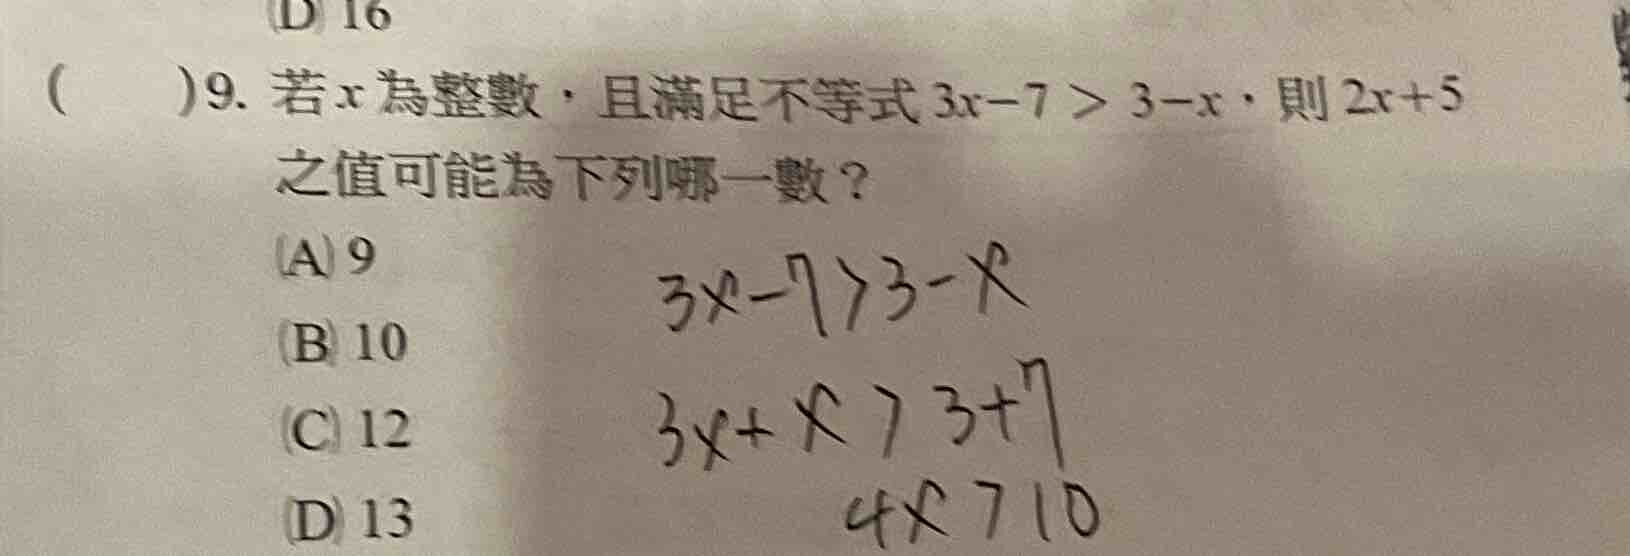 (D) 16
(　　)9. 若x為整數，且滿足不等式 3x−7 > 3−x，則 2x+5
之值可能為下列哪一數？
(A) 9
(B) 10
(C) 12
(D) 13
3x-7>3-x
3x+x>3+7
4x>10